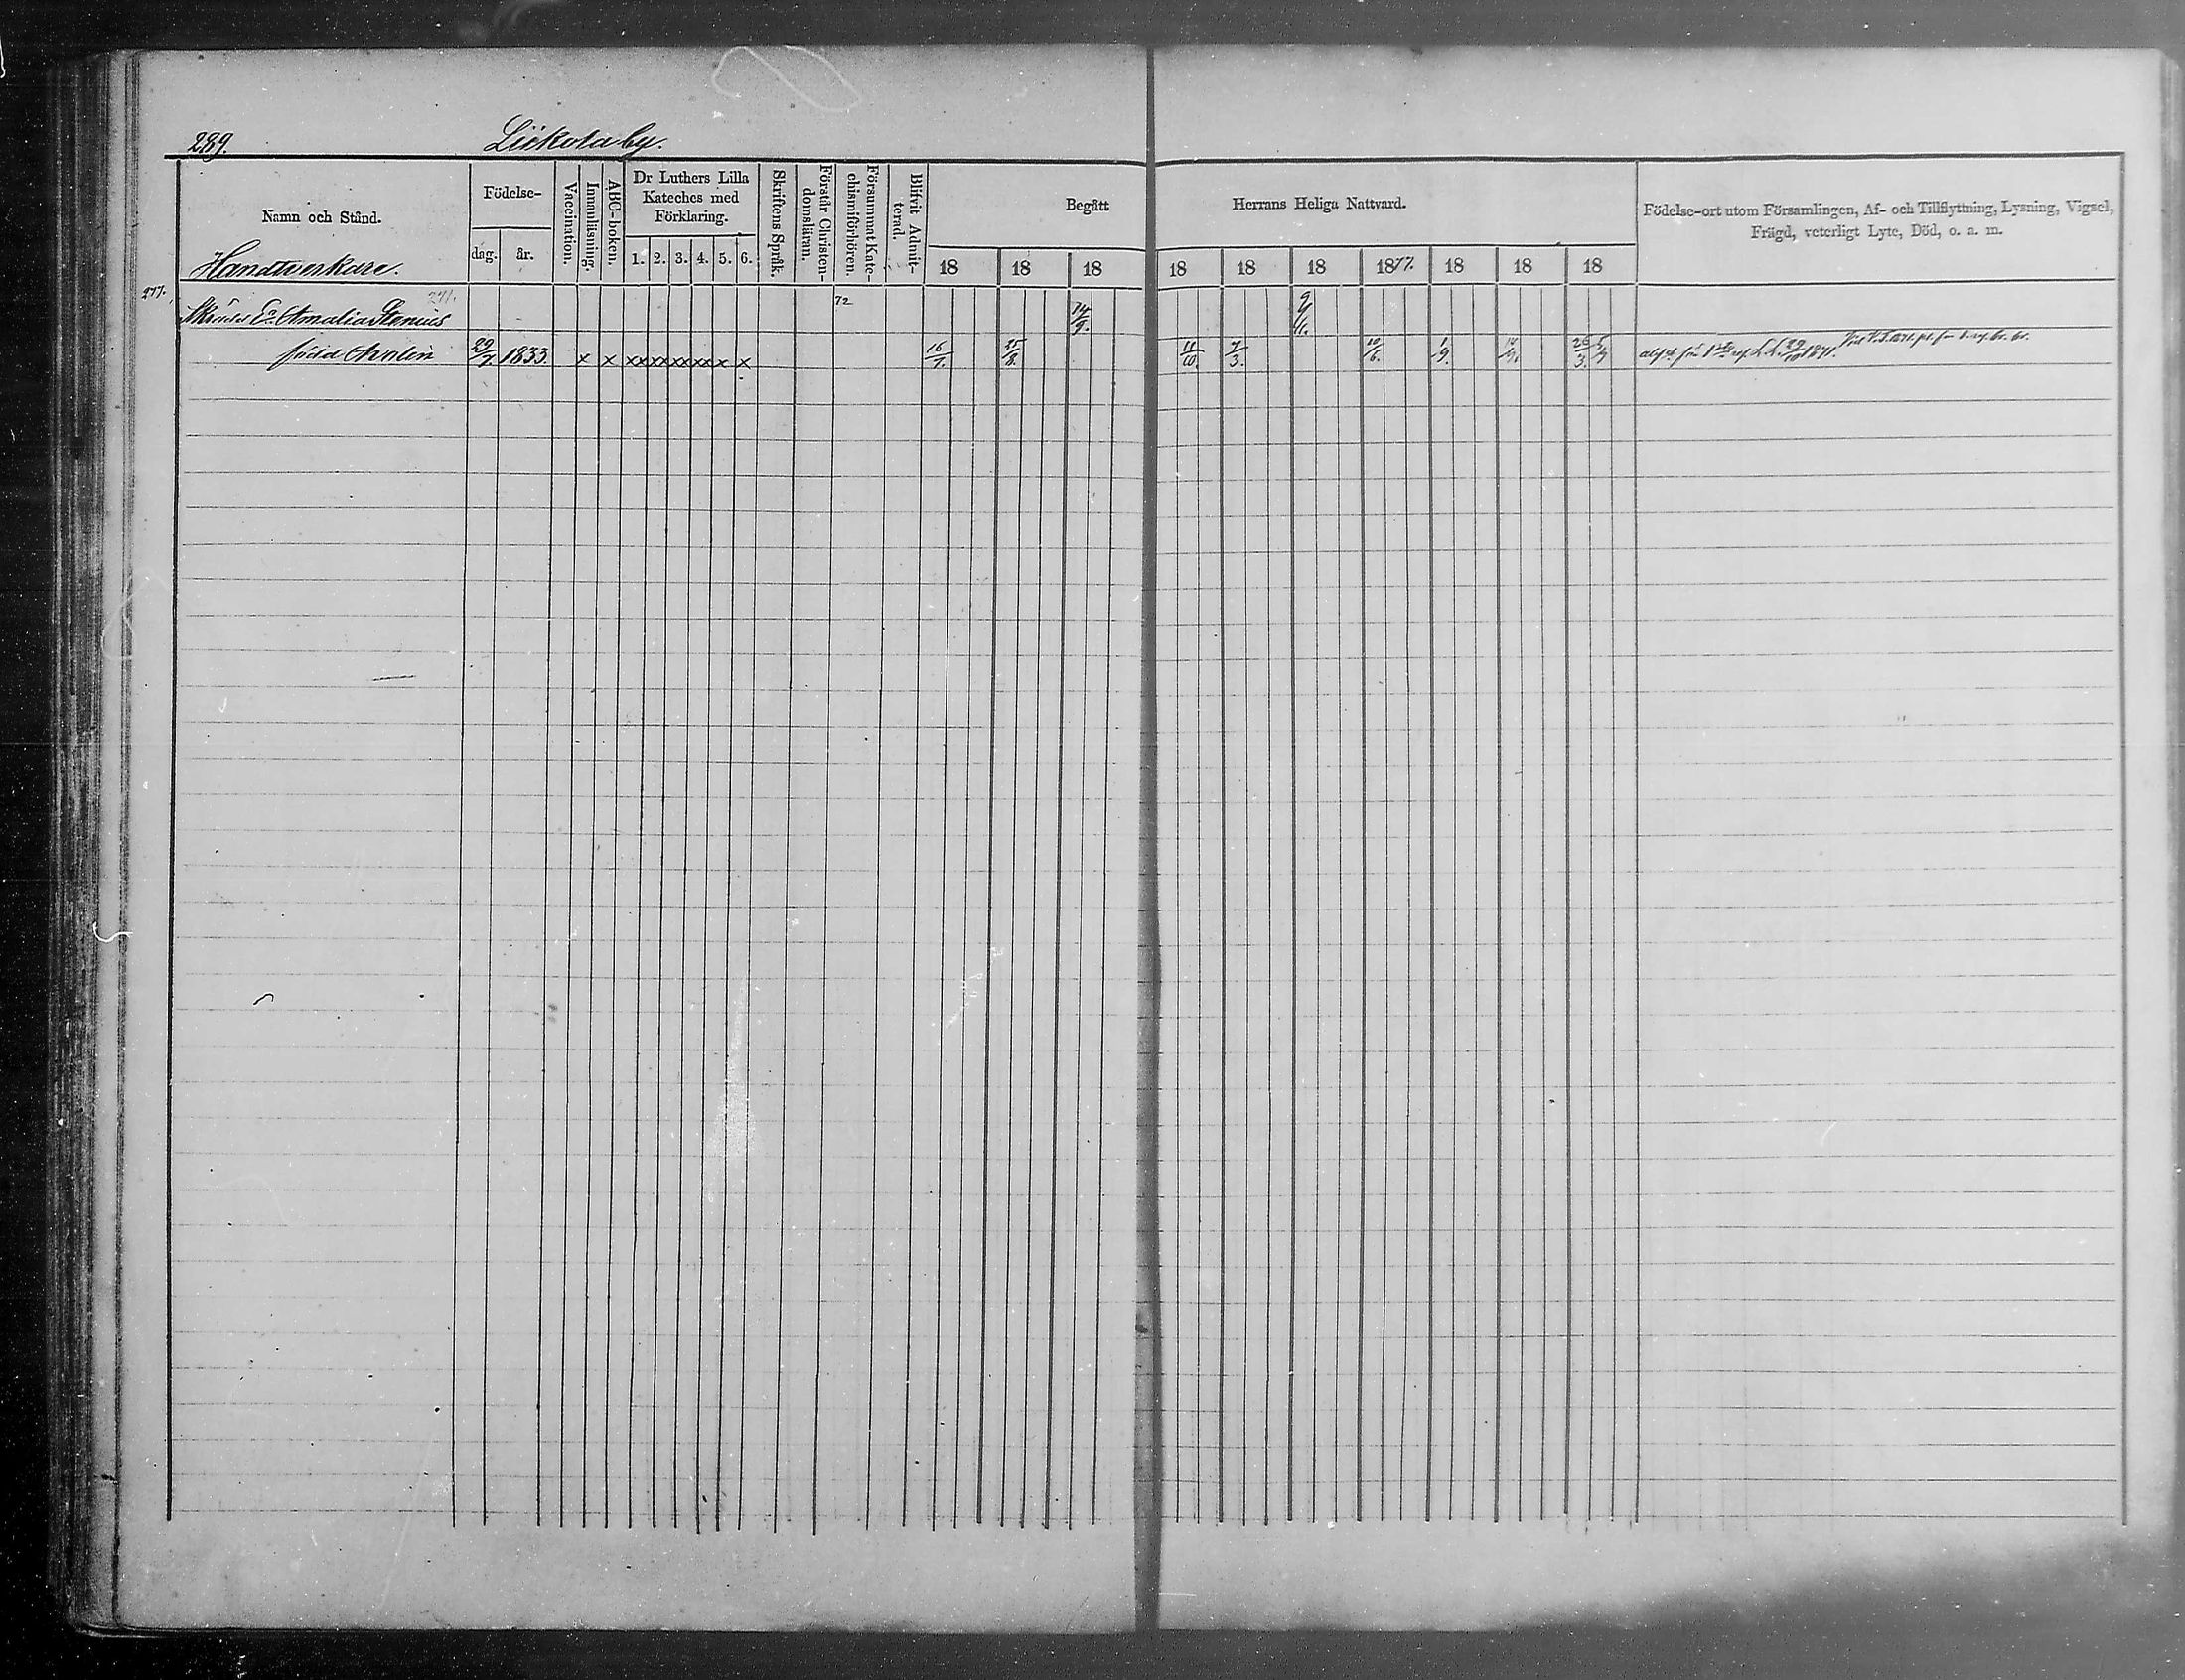 289.
Liikola by.
Namn och Stånd.
Handtverkare.
Födelse-
dag. år.
Vaccination.
Innanläsning.
ABC-boken.
Dr Luthers Lilla
Kateches med
Förklaring.
1. 2. 3. 4. 5. 6.
Skriftens Språk.
Förstår Christen-
domsläran.
Försummat Kate-
chismiförhören.
Blifvit Admit-
terad.
Begått Herrans Heliga Nattvard.
18 18 18 18 18 18 1877. 18 18 18
Födelse-ort utom Församlingen, Af- och Tillflyttning, Lysning, Vigsel,
Frägd, veterligt Lyte, Död, o. a. m.
277. 271.
Amalia Stenius 72 14/9. 9/11.
född Avelin 29/7. 1833. x x x x x x x x x x x 16/7. 25/8. 11/10. 7/3. 10/6. 1/9. 14/9. 26/3. 29/10 1871.